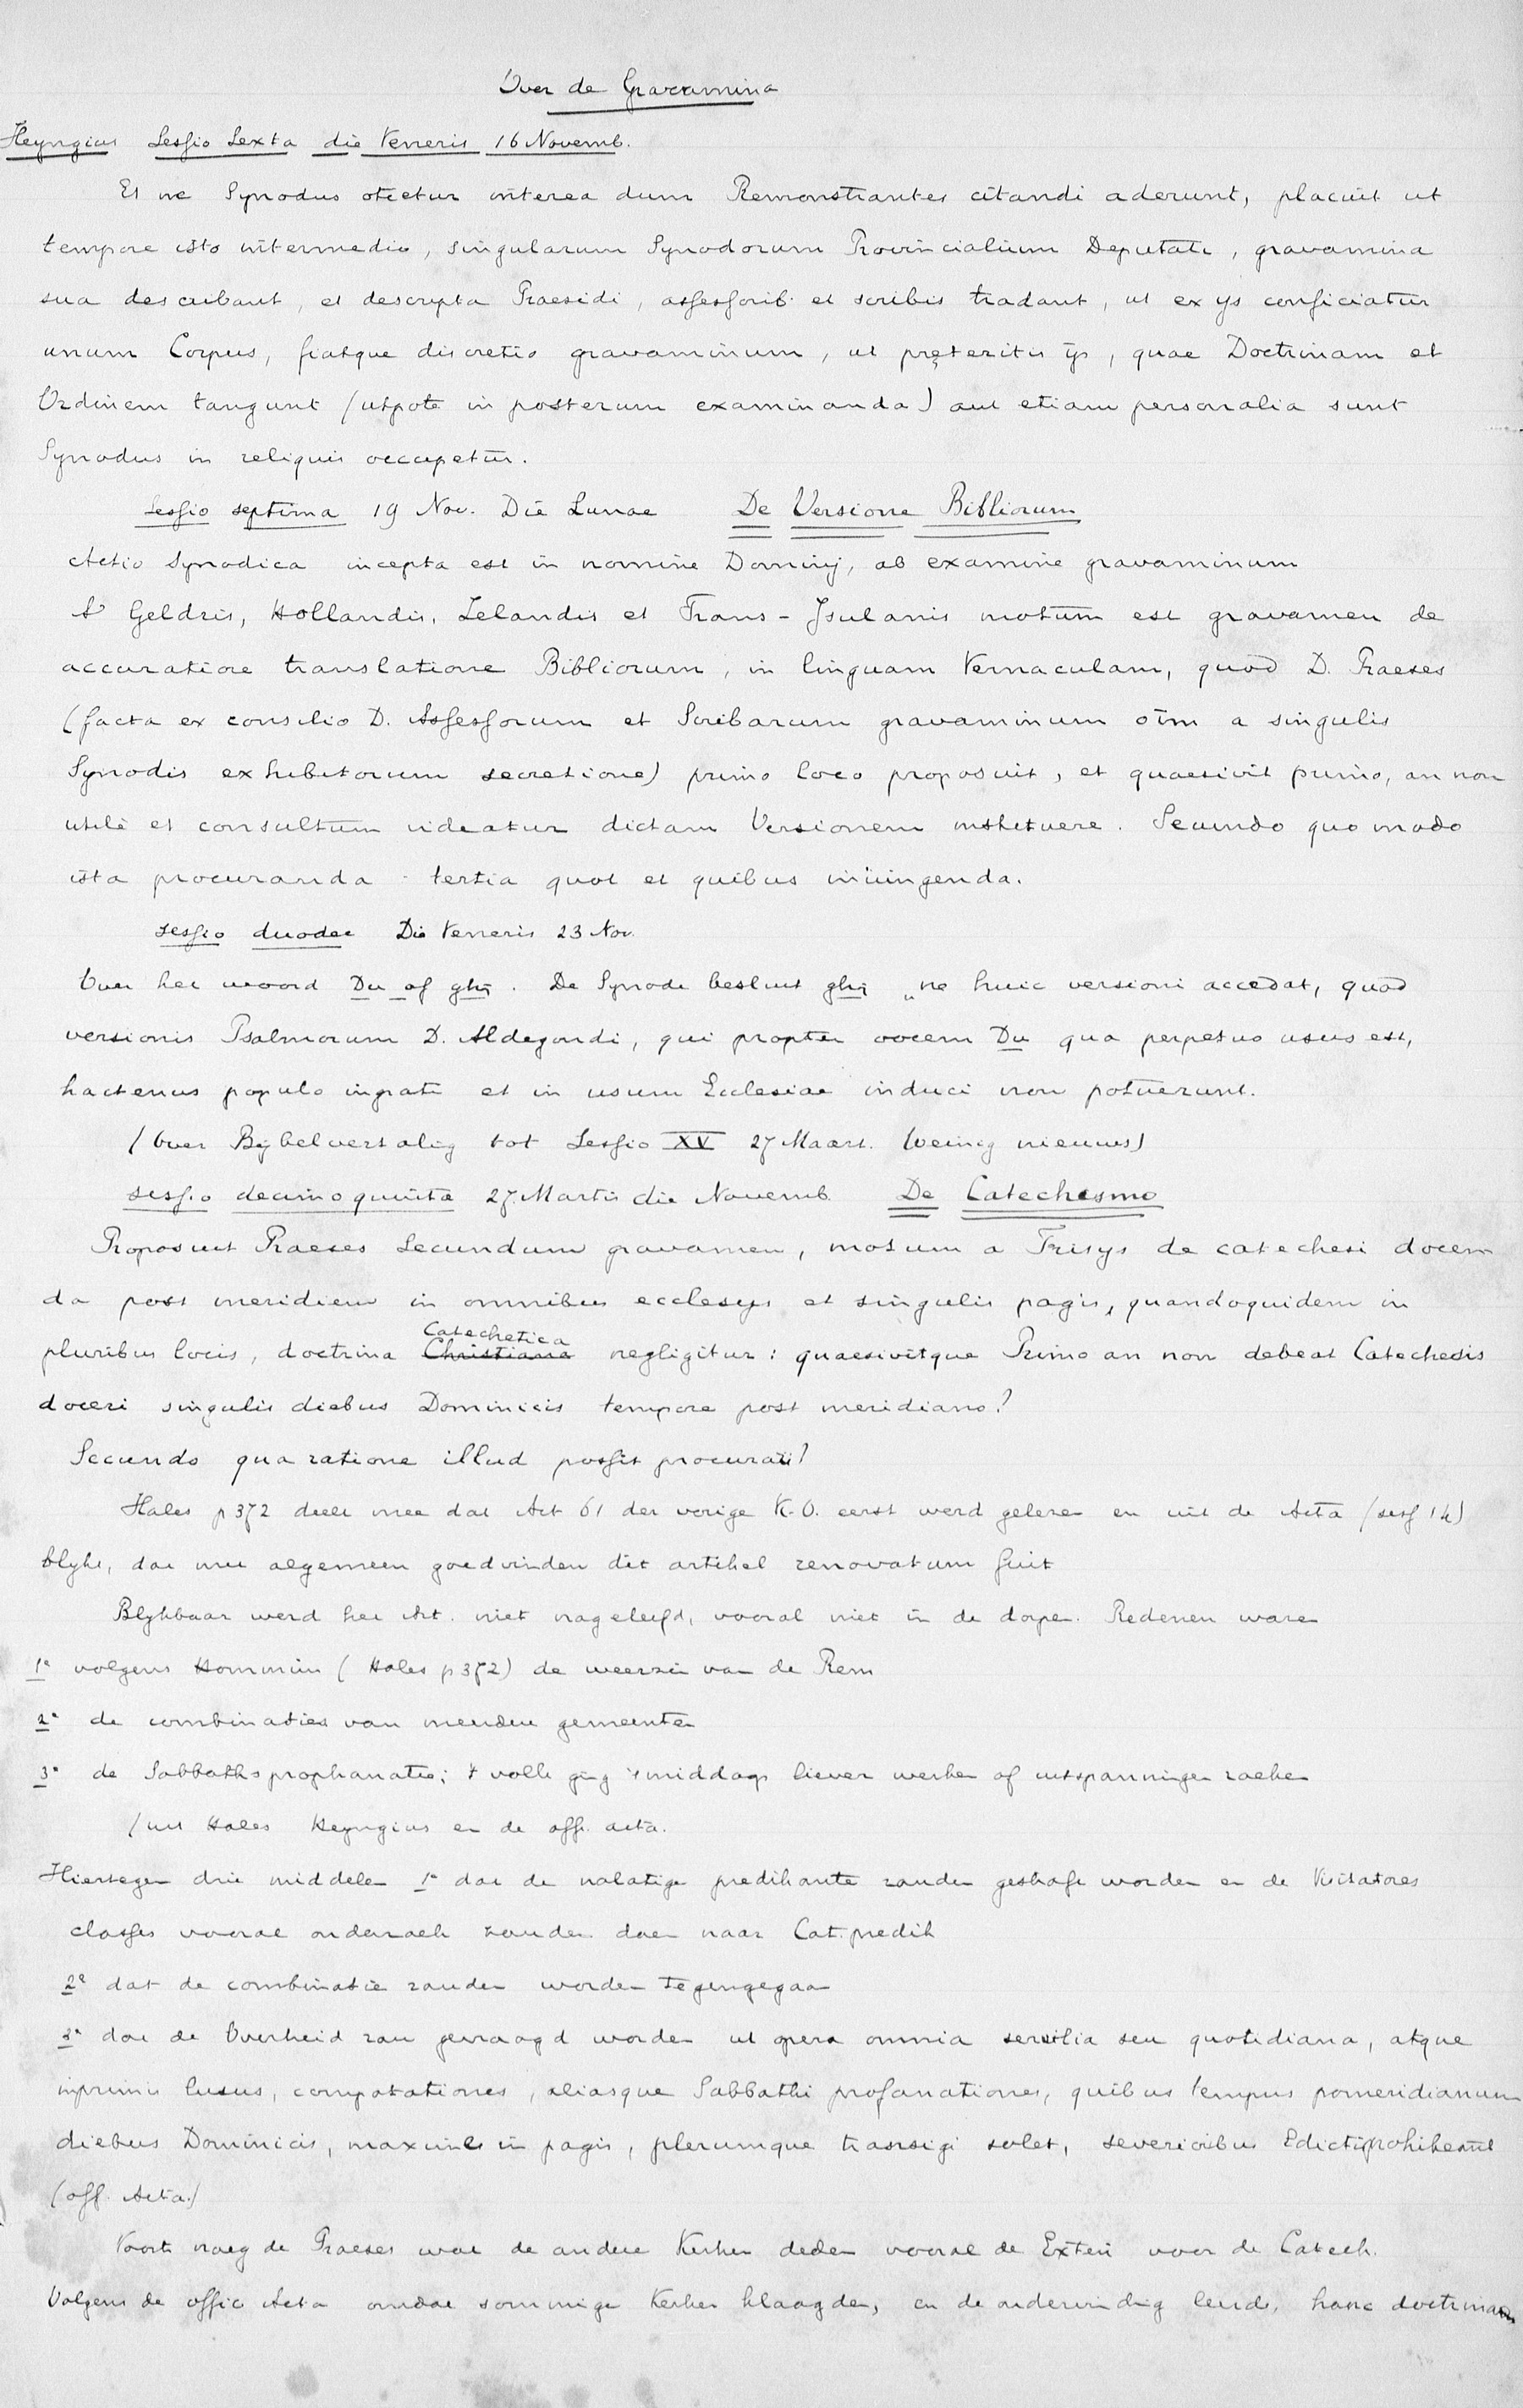 Over de Gravamina
Heyngius Sessio Sexta die Veneris 16 Novemb.
Et ne Synodus otietur interea dum Remonstrantes citandi aderunt, placuit ut
tempore isto intermedio, singularum Synodorum Provincialium Deputati, gravamina
sua describant, et descripta Praesidi, assessorib. et scribis tradant, ut ex ijs conficiatur
unum Corpus, fiatque discretio gravaminum, ut pręteritis ijs, quae Doctrinam et
Ordinem tangunt (utpote in posterum examinanda) aut etiam personalia sunt
Synodus in reliquis occupetur.
Sessio septima 19 Nov. Die Lunae De Versione Bibliorum
Actio Synodica incepta est in nomine Dominij, ab examine gravaminum
A Geldris, Hollandis, Zelandis et Trans-Isulanis motum est gravamen de
accuratiore translatione Bibliorum, in linguam Vernaculam, quod D. Praeses
(facta ex consilio D. Assessorum et Scribarum gravaminum oīm a singulis
Synodis exhibitorum secretione) primo loco proposuit, et quaesivit primo, an non
utile et consultum videatur dictam Versionem instituere. Secundo quo modo
ista procuranda. tertia quot et quibus iniungenda.
Sessio duodec Die Veneris 23 Nov.
Over het woord Du of ghij. De Synode besluit ghij „ne huic versioni accedat, quod
versionis Psalmorum D. Aldegondi, qui propter vocem Du qua perpetuo usus est,
hactenus populo ingrati et in usum Ecclesiae induci non potuerunt.
(Over Bijbelvertaling tot Sessio XV 27 Maart. (weinig nieuws)
Sessio decimo quinta 27. Martis die Novemb. De Catechismo
Proposuit Praeses Secundum gravamen, motum a Frisijs de catechesi docen
da post meridiem in omnibus ecclesijs et singulis pagis, quandoquidem in
pluribus locis, doctrina Christiana Catechetica negligitur: quaesivitque Primo an non debeat Catechesis
doceri singulis diebus Dominicis tempore post meridiano?
Secundo qua ratione illud possit procurari?
Hales p 372 deelt mee dat Art 61 der vorige K.O. eerst werd gelezen en uit de Acta (sess 14)
blijkt, dat met algemeen goedvinden dit artikel renovatum fuit
Blijkbaar werd het Art. niet nageleefd, vooral niet in de dorpen. Redenen waren
1e volgens Hommius (Hales p 372) de weerzin van de Rem
2e de combinaties van meerdere gemeenten
3e de Sabbathsprophanatie; 't volk ging 's middags liever werken of uitspanningen zoeken
(uit Hales Heyngius en de off. acta.
Hiertegen drie middelen 1e dat de nalatige predikanten zouden gestraft worden en de Visitatores
classes vooral onderzoek zouden doen naar Cat. predik
2e dat de combinatie zouden worden tegengegaan
3e dat de Overheid zou gevraagd worden ut opera omnia servilia seu quotidiana, atque
inprimis lusus, compotationes, aliasque Sabbathi profanationes, quibus tempus pomeridianum
diebus Dominicis, maxime in pagis, plerumque transigi solet, severioribus Edictis prohibeant
(off. Acta.)
Voorts vraag de Praeses wat de andere Kerken deden vooral de Exteri voor de Catech.
Volgens de offic Acta omdat sommige Kerken klaagden, en de ondervinding leerde, hanc doctrinam